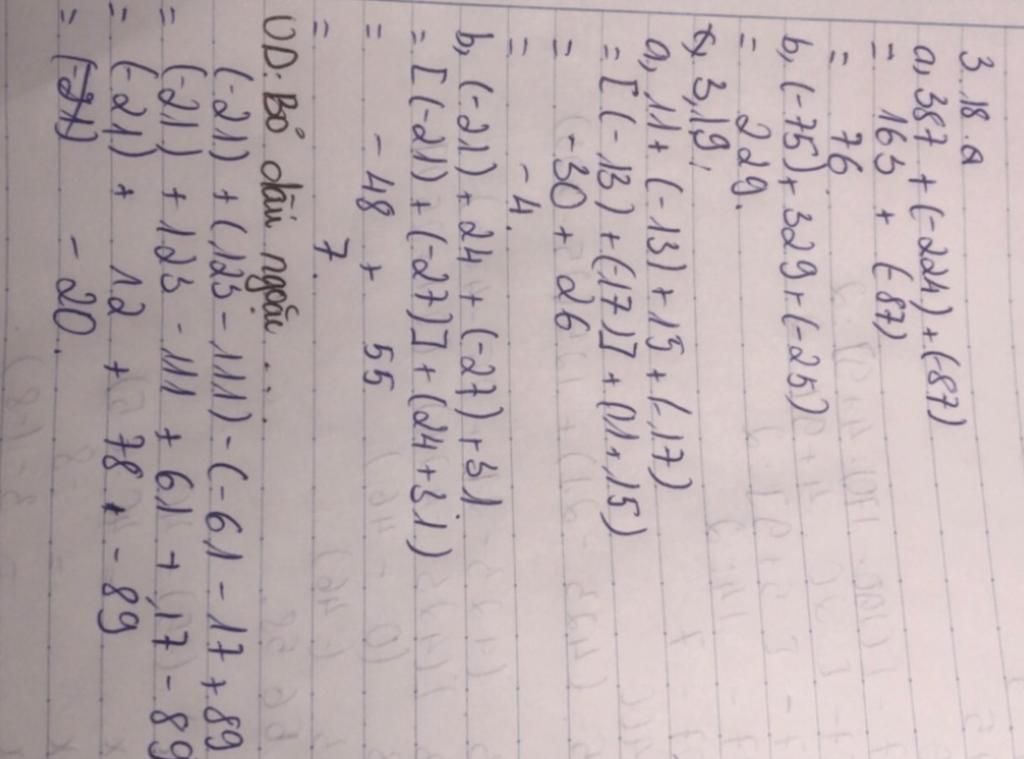 3.18.a
a, 387 + (-224) + (-87)
= 163 + (-87)
= 76
b, (-75) + 329 + (-25)
= 229.
3,19,
a, 11 + (-13) + 15 + (-17)
= [(-13) + (-17)] + (11 + 15)
= -30 + 26
= -4.
b, (-21) + 24 + (-27) + 31
= [(-21) + (-27)] + (24 + 31)
= -48 + 55
= 7.
VD: Bỏ dấu ngoặc....
(-21) + (123 - 111) - (-61 - 17 + 89
= (-21) + 123 - 111 + 61 + 17 - 89
= (-21) + 12 + 78 + - 89
= (-21) - 20.